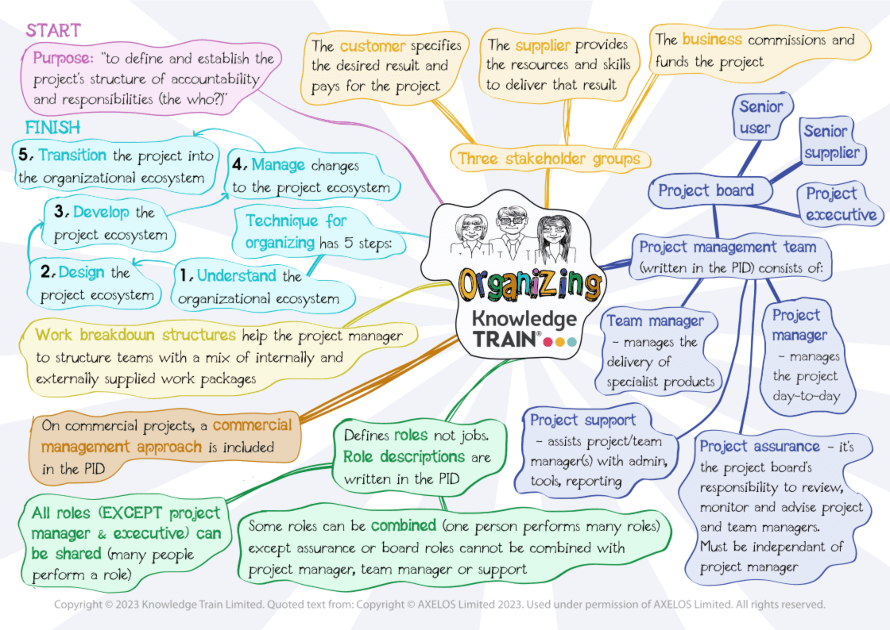 START
Purpose: "to define and establish the
project's structure of accountability
and responsibilities (the who?)"
The customer specifies
the desired result and
pays for the project
The supplier provides
the resources and skills
to deliver that result
The business commissions and
funds the project
Three stakeholder groups
Senior
user
Senior
supplier
Project
executive
Project board
Project management team
(written in the PID) consists of:
Team manager
– manages the
delivery of
specialist products
Project
manager
– manages
the project
day-to-day
Project support
– assists project/team
manager(s) with admin,
tools, reporting
Project assurance – it's
the project board's
responsibility to review,
monitor and advise project
and team managers.
Must be independant of
project manager
FINISH
5. Transition the project into
the organizational ecosystem
4. Manage changes
to the project ecosystem
3. Develop the
project ecosystem
Technique for
organizing has 5 steps:
2. Design the
project ecosystem
1. Understand the
organizational ecosystem
Organizing
Knowledge
TRAIN®
Work breakdown structures help the project manager
to structure teams with a mix of internally and
externally supplied work packages
On commercial projects, a commercial
management approach is included
in the PID
Defines roles not jobs.
Role descriptions are
written in the PID
All roles (EXCEPT project
manager & executive) can
be shared (many people
perform a role)
Some roles can be combined (one person performs many roles)
except assurance or board roles cannot be combined with
project manager, team manager or support
Copyright © 2023 Knowledge Train Limited. Quoted text from: Copyright © AXELOS Limited 2023. Used under permission of AXELOS Limited. All rights reserved.